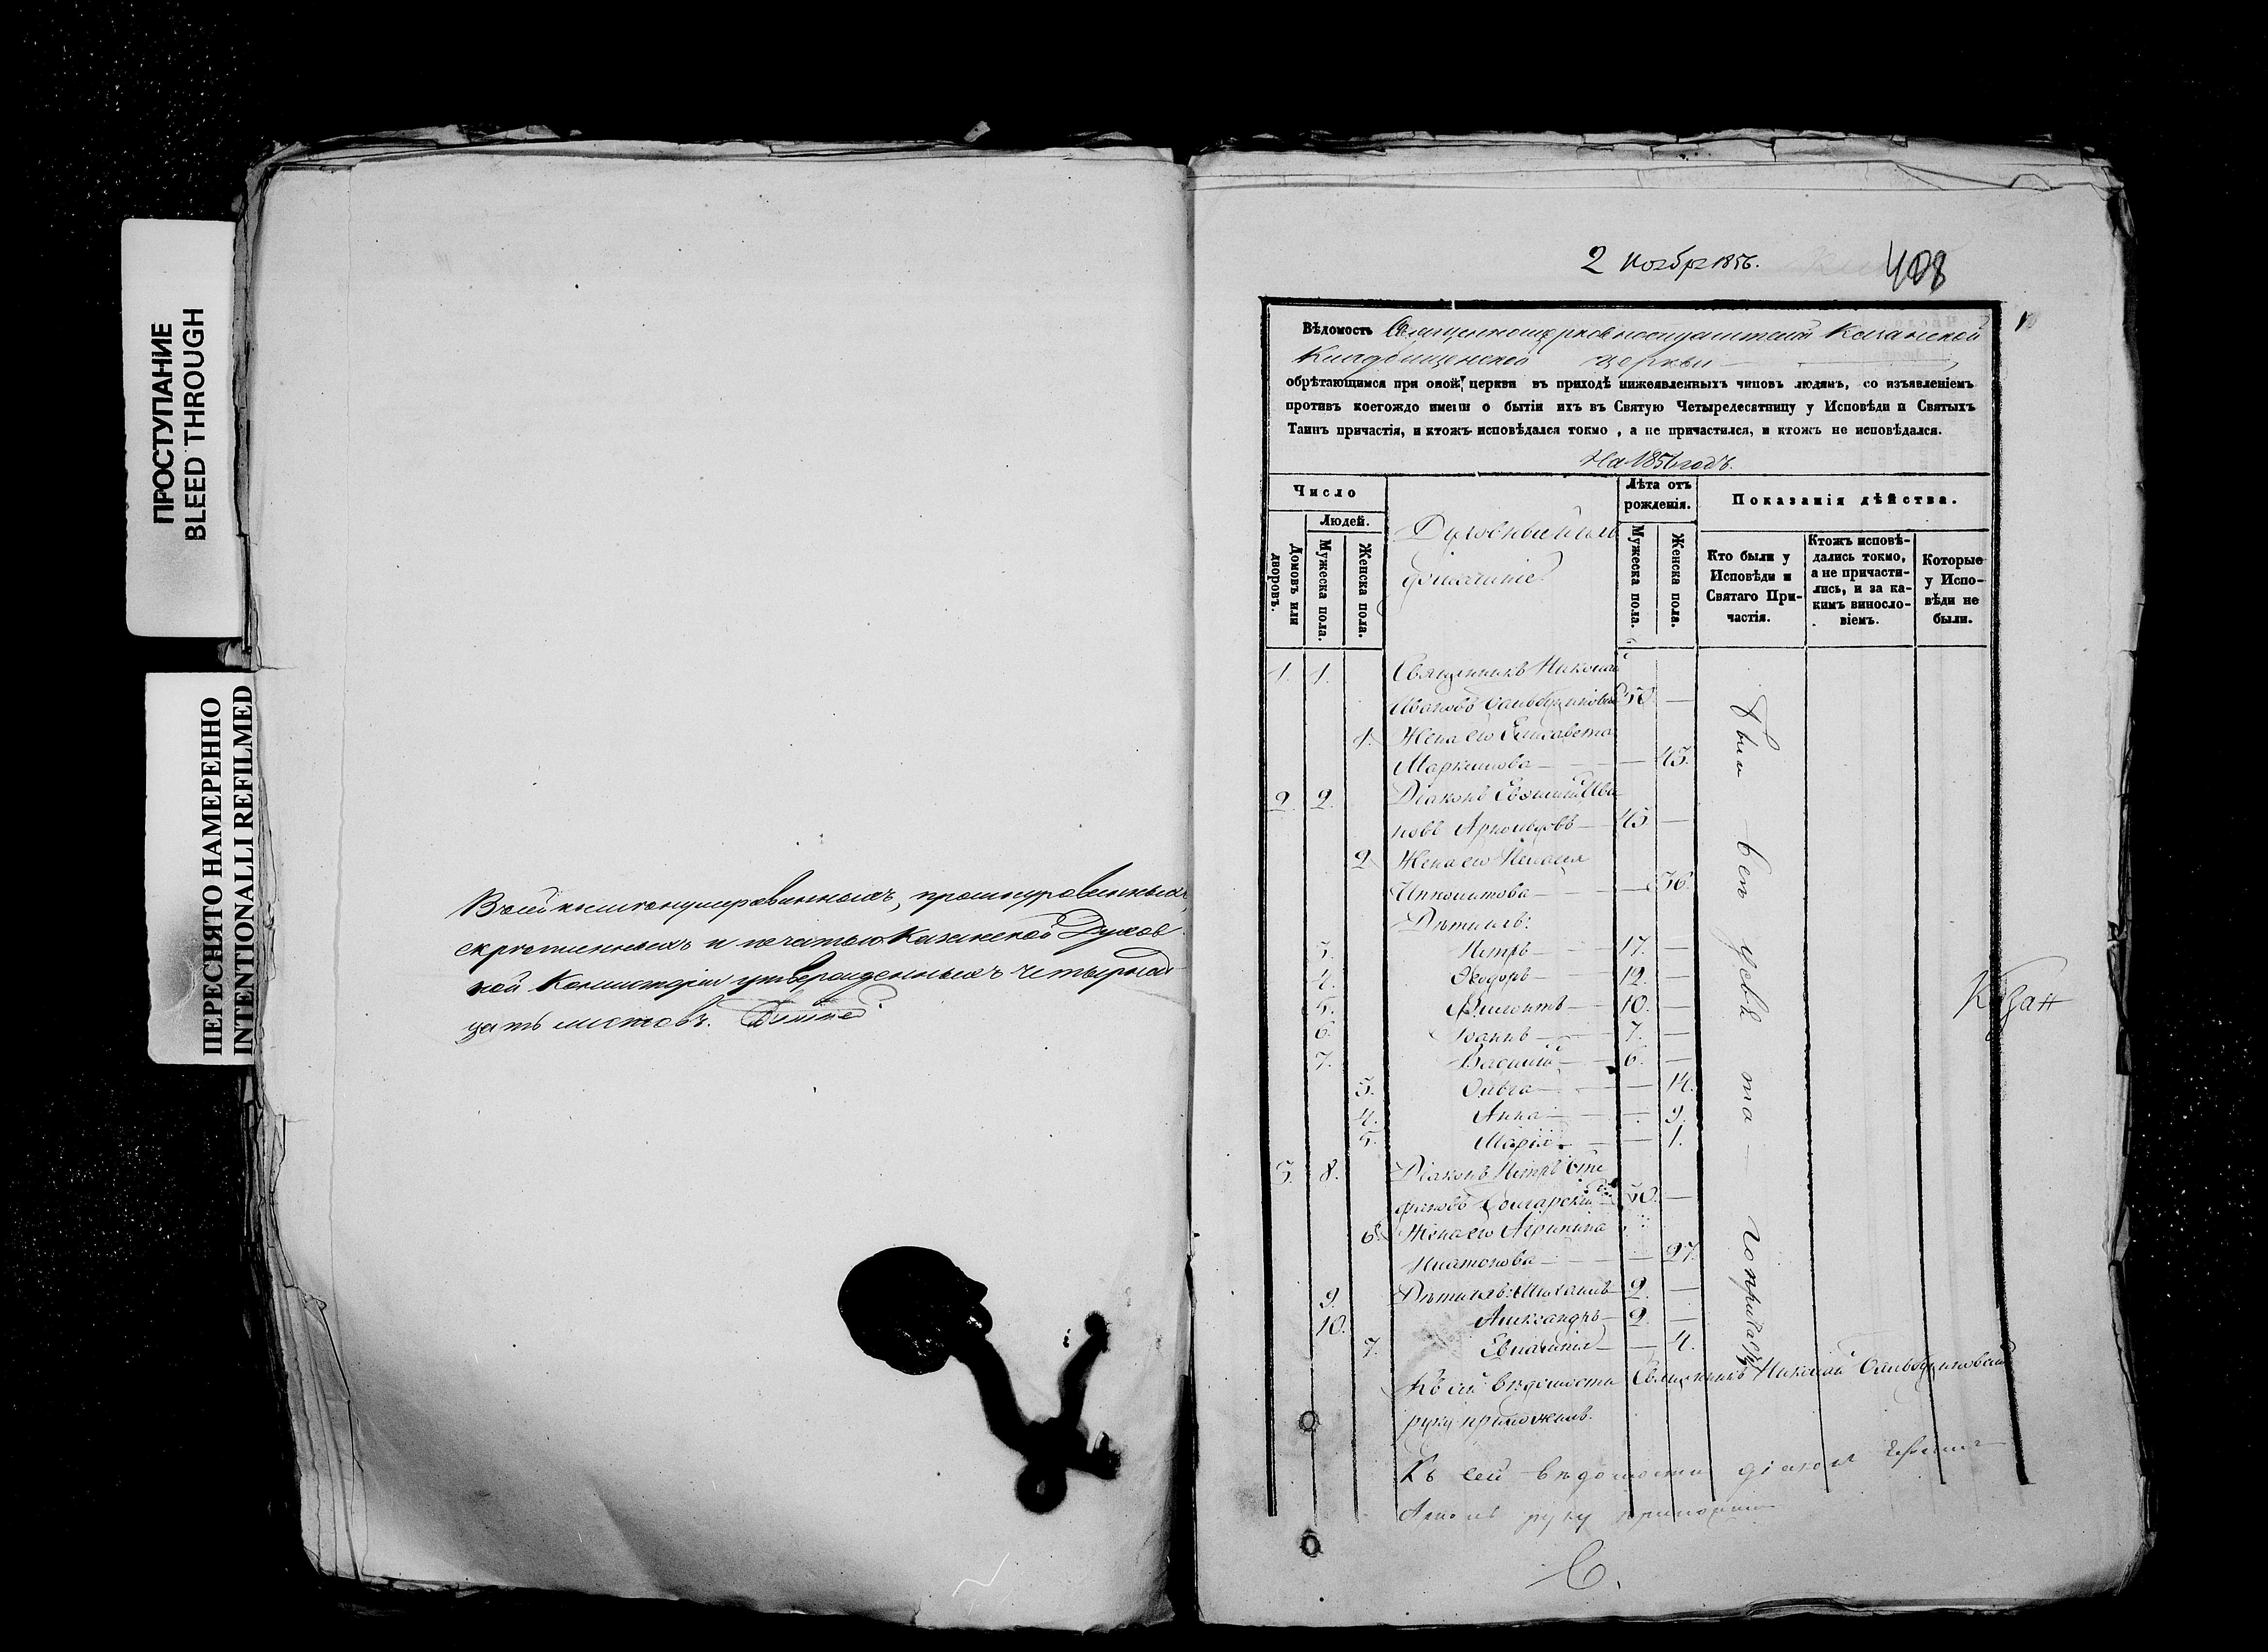 ПРОСТУПАНИЕ
BLEED THROUGH
ПЕРЕСНЯТО НАМЕРЕННО
INTENTIONALLI REFILMED
В сей книге нумерованныхъ, прошнурованныхъ,
скрѣпленныхъ и печатью Казанской Духов
ной Консисторіи утвержденныхъ четырнад
цать листовъ.
2 Ноября 1856.
408
Вѣдомость Священноцерковнослужителей Казанской
Кладбищенской церкви
обрѣтающимся при оной церкви въ приходѣ нижеявленныхъ чиповъ людямъ, со изъявленіемъ
противъ коегождо имени о бытіи ихъ въ Святую Четыредесятницу у Исповѣди и Святыхъ
Таинъ причастія, и ктожъ исповѣдался токмо, а не причастился, и ктожъ не исповѣдался.
На 1856 годъ.
Число
Людей.
Домовъ или дворовъ.
Мужеска пола.
Женска пола.
Духовныи и ихъ
домашніе.
Лѣта отъ рожденія.
Мужеска пола.
Женска пола.
Показанія дѣйства.
Кто были у Исповѣди и Святаго При-
частія.
Ктожъ исповѣ-
дались токмо, а не причасти-
лись, и за ка-
кимъ винослo-
віемъ.
Которые у Испо-
вѣди не были.
1. 1. Священникъ Николай
Ивановъ 50. —
1. Жена его Елисавета
— 45.
2. 2. Діаконъ Евѳимій Ива
новъ 45 —
2. Жена его Пелагея
Ипполитова — 36.
Дѣти ихъ:
3. Петръ — 17. —
4. Ѳеодоръ — 12. —
5. — 10. —
6. Іоаннъ — 7. —
7. Василій — 6. —
3. Ольга — — 14.
4. Анна — — 9.
5. Марія — — 1.
3. 8. Діаконъ Петръ Сте
фановъ Болгарскій 30. —
6. Жена его Агрипина
Платонова — — 27.
9. Дѣти ихъ: Михаилъ 2. —
10. Александръ — 2. —
7. Евлампія — — 4.
были
Къ сей вѣдомости Священникъ Николай
руку приложилъ.
Къ сей вѣдомости діаконъ
руку приложилъ
Казан